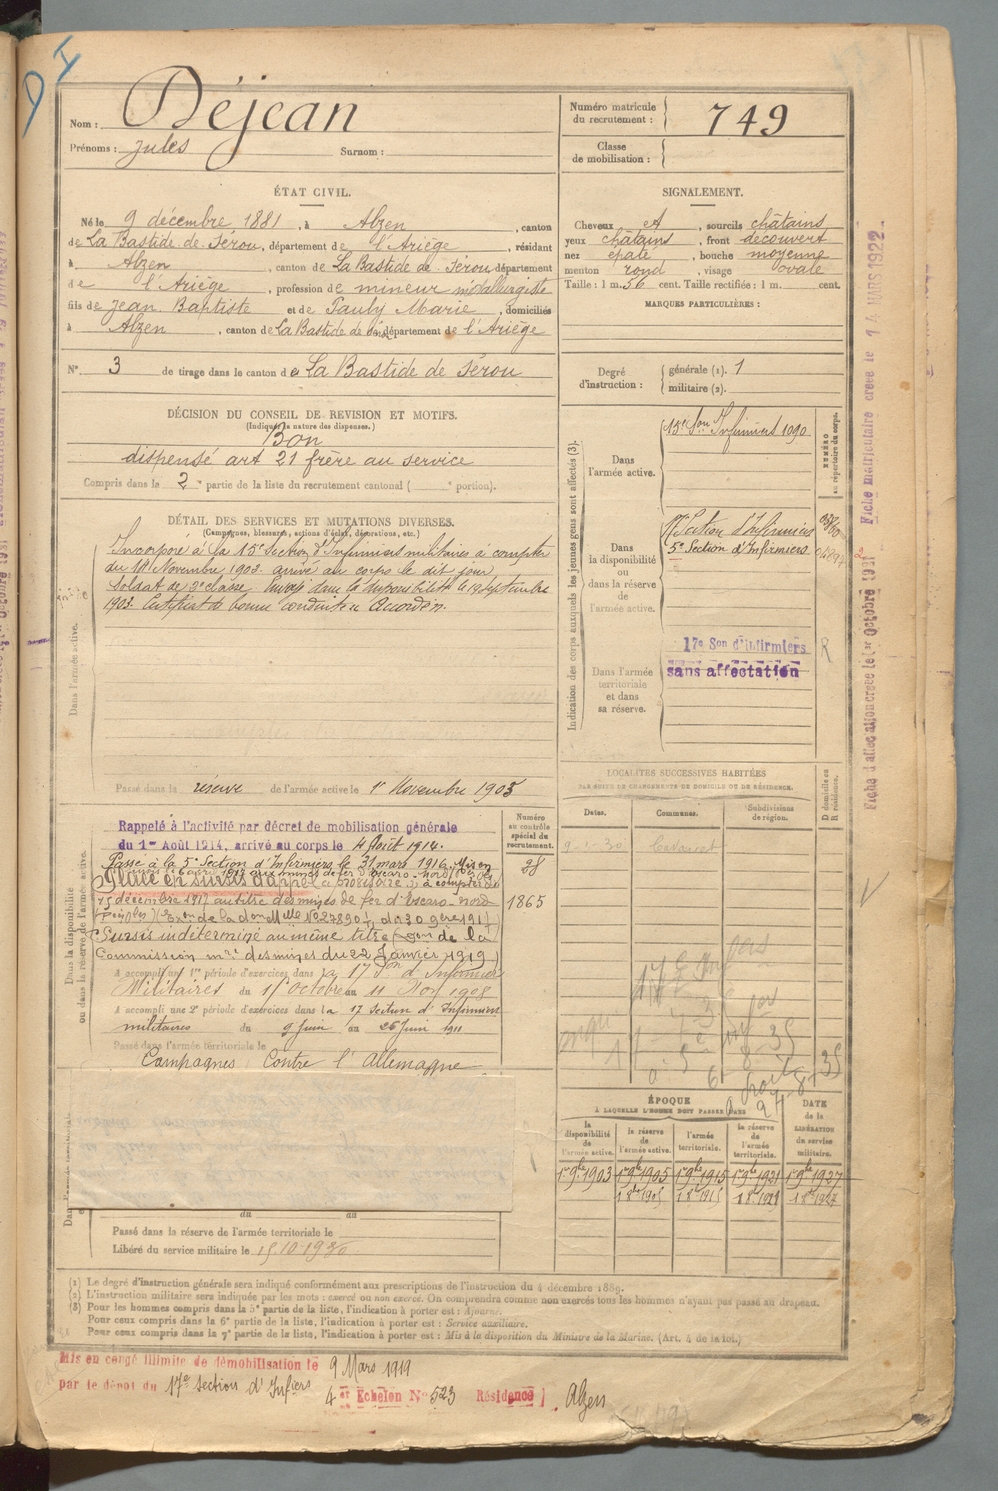 Nom : Déjean
Prénoms : Jules Surnom :
Numéro matricule du recrutement : 749
Classe de mobilisation :
ÉTAT CIVIL.
Né le 9 décembre 1881, à Alzen, canton
de La Bastide de Sérou, département de l'Ariège, résidant
à Alzen, canton de La Bastide de Sérou, département
de l'Ariège, profession de mineur métallurgiste
fils de Jean Baptiste et de Pauly Marie, domiciliés
à Alzen, canton de La Bastide de Sérou, département de l'Ariège
N° 3 de tirage dans le canton de La Bastide de Sérou
SIGNALEMENT.
Cheveux et, sourcils châtains
yeux châtains, front découvert
nez épaté, bouche moyenne
menton rond, visage ovale
Taille : 1 m. 56 cent. Taille rectifiée : 1 m. cent.
MARQUES PARTICULIÈRES :
Degré d'instruction : générale (1). 1
militaire (2).
DÉCISION DU CONSEIL DE REVISION ET MOTIFS.
(Indiquer la nature des dispenses.)
Bon
dispensé art 21 frère au service
Compris dans la 2e partie de la liste du recrutement cantonal ( portion).
DÉTAIL DES SERVICES ET MUTATIONS DIVERSES.
(Campagnes, blessures, actions d'éclat, décorations, etc.)
Incorporé à la 15e Section d'Infirmiers militaires à compter
du Novembre 1902. arrivé au corps le dit jour,
Soldat de 2e classe. Envoyé dans la disponibilité le septembre
1903. Certificat de bonne conduite Accordé.
Dans l'armée active.
Passé dans la réserve de l'armée active le 1er Novembre 1905
Indication des corps auxquels les jeunes gens sont affectés (3).
NUMÉRO au répertoire du corps.
Dans l'armée active.
15e Son Infirmiers 1090
Dans la disponibilité ou dans la réserve de l'armée active.
Section d'Infirmiers
5e Section d'Infirmiers
17e Son d'Infirmiers
sans affectation
R
Dans l'armée territoriale et dans sa réserve.
LOCALITÉS SUCCESSIVES HABITÉES
PAR SUITE DE CHANGEMENTS DE DOMICILE OU DE RÉSIDENCE.
Dates. Communes. Subdivisions de région. D domicile ou R résidence.
Numéro au contrôle spécial du recrutement.
28
1865
Dans la disponibilité ou dans la réserve de l'armée active.
Rappelé à l'activité par décret de mobilisation générale
du 1er Août 1914, arrivé au corps le 4 Août 1914.
Passé à la 5e Section d'Infirmiers le 31 mars 1916. Mis en
Placé en sursis d'appel à compter du
15 décembre 1917 au titre des mines de fer d'Escaro-nord
Sursis indéterminé au même titre de la
Commission des mines du 22 Janvier 1919)
A accompli une 1re période d'exercices dans la 17 Son d'Infirmiers
Militaires du 15 octobre au 11 Nov 1908
A accompli une 2e période d'exercices dans la 17 Section d'Infirmiers
militaires du 9 Juin au 25 Juin 1911
Passé dans l'armée territoriale le
Campagnes Contre l'Allemagne
ÉPOQUE
À LAQUELLE L'HOMME DOIT PASSER DANS
DATE de la LIBÉRATION du service militaire.
la disponibilité de l'armée active. la réserve de l'armée active. l'armée territoriale. la réserve de l'armée territoriale.
1er 9bre 1903 1er 9bre 1905 1er 9bre 1915 1er 9bre 1921 1er 9bre 1927
1 8bre 1905 1 8bre 1915 1 8bre 1921 1 8bre 1927
du au
Passé dans la réserve de l'armée territoriale le
Libéré du service militaire le 15-10-1930
(1) Le degré d'instruction générale sera indiqué conformément aux prescriptions de l'instruction du 4 décembre 1889.
(2) L'instruction militaire sera indiquée par les mots : exercé ou non exercé. On comprendra comme non exercés tous les hommes n'ayant pas passé au drapeau.
(3) Pour les hommes compris dans la 5e partie de la liste, l'indication à porter est : Ajourné.
Pour ceux compris dans la 6e partie de la liste, l'indication à porter est : Service auxiliaire.
Pour ceux compris dans la 7e partie de la liste, l'indication à porter est : Mis à la disposition du Ministre de la Marine. (Art. 4 de la loi.)
Mis en congé illimité de démobilisation le 9 Mars 1919
par le dépôt du 17e Section d'Infiers
4e Echelon N° 523 Résidence Alzen
Fiche matriculaire créée le 14 MARS 1922.
Fiche d'affectation créée le 1er Octobre 1931